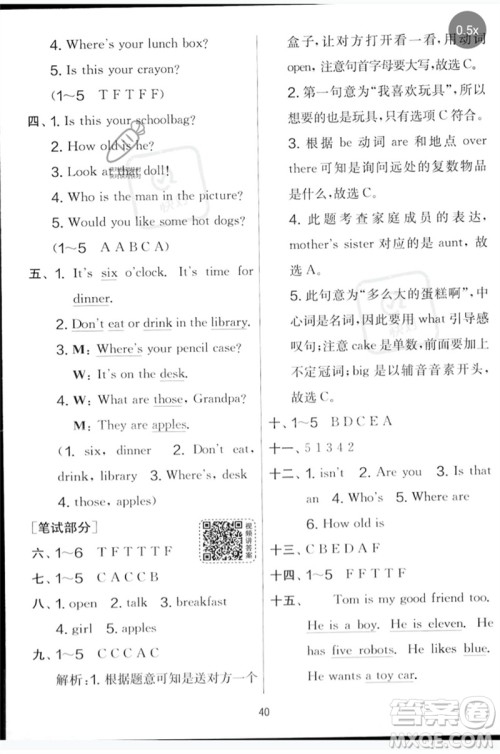 4. Where's your lunch box?
5. Is this your crayon?
(1~5 T F T F F)
四、1. Is this your schoolbag?
2. How old is he?
3. Look at that doll!
4. Who is the man in the picture?
5. Would you like some hot dogs?
(1~5 A A B C A)
五、1. It's six o'clock. It's time for
dinner.
2. Don't eat or drink in the library.
3. M: Where's your pencil case?
W: It's on the desk.
4. W: What are those, Grandpa?
M: They're apples.
(1. six, dinner 2. Don't eat,
drink, library 3. Where's, desk
4. those, apples)
[笔试部分]
视频讲答案
六、1~6 T F T T T F
七、1~5 C A C C B
八、1. open 2. talk 3. breakfast
4. girl 5. apples
九、1~5 C C A C C
解析:1. 根据题意可知是送对方一个
盒子,让对方打开看一看,故用动词
open,注意句首字母要大写,故选 C。
2. 第一句意为“我喜欢玩具”,所以
想要的也是玩具,只有选项 C 符合。
3. 根据 be 动词 are 和地点 over
there 可知是询问远处的复数物品
是什么,故选 C。
4. 此题考查家庭成员的表达,
mother's sister 对应的是 aunt,故
选 A。
5. 此句意为“多么大的蛋糕啊”,中
心词是名词,因此要用 what 引导感
叹句;注意 cake 是单数,前面要加上
不定冠词;big 是以辅音音素开头,
故选 C。
十、1~5 B D C E A
十一、5 1 3 4 2
十二、1. isn't 2. Are you 3. Is that
an 4. Who's 5. Where are
6. How old is
十三、C B E D A F
十四、1~5 F F T T F
十五、 Tom is my good friend too.
He is a boy. He is eleven. He
has five robots. He likes them.
He wants a toy car.
40
0.5x
答案圈
MXQE.COM